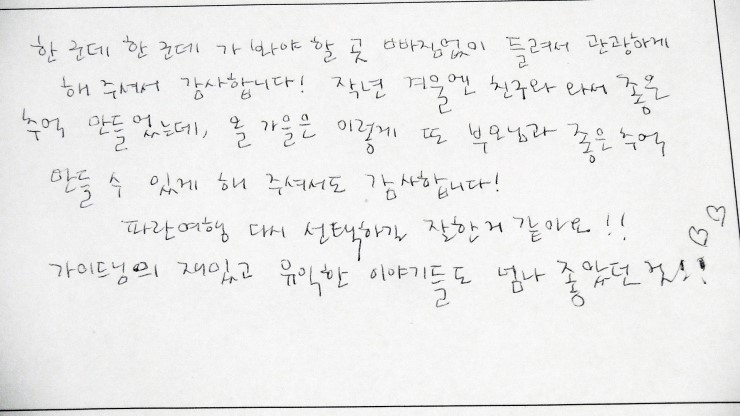 한 군데 한 군데 가 봐야 할 곳 빠짐없이 들려서 관광하게
해 주셔서 감사합니다! 작년 겨울엔 친구와 와서 좋은
추억 만들었는데, 올 가을은 이렇게 또 부모님과 좋은 추억
만들 수 있게 해 주셔서도 감사합니다!
파란여행 다시 선택하길 잘한거 같아요!!
가이드님의 재밌고 유익한 이야기들도 넘나 좋았던 것!